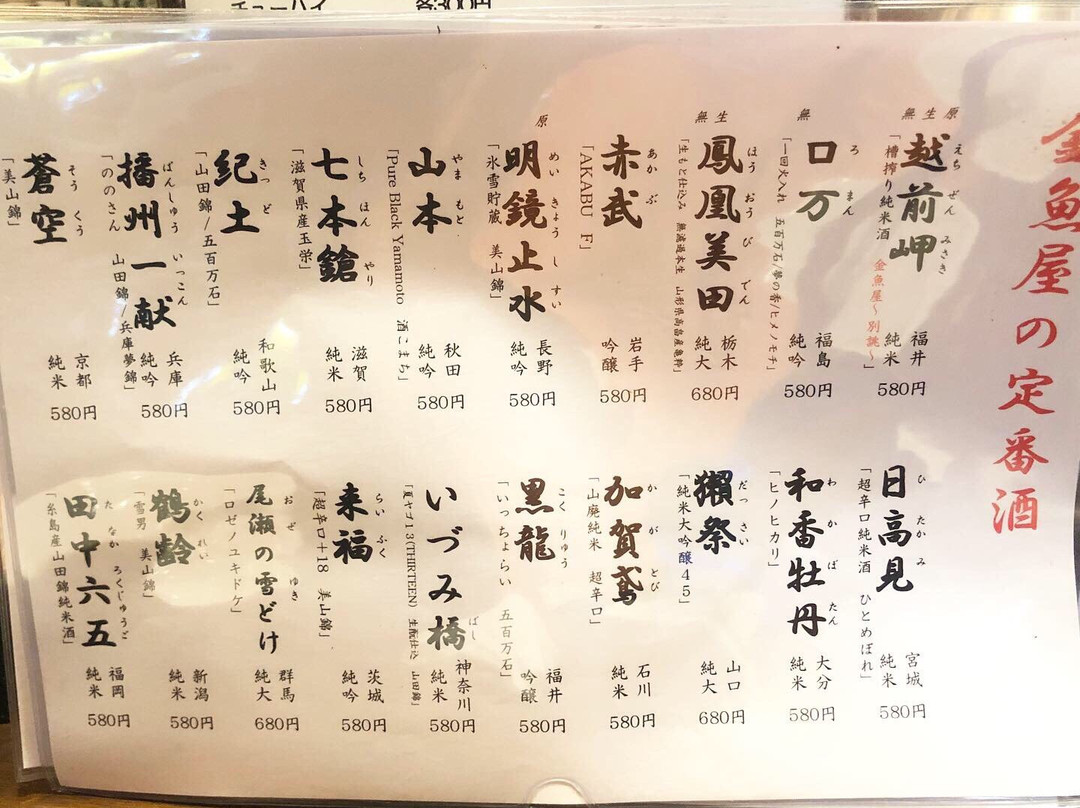 チューハイ 各300円
金魚屋の定番酒
原生無
越前岬
えち ぜん みさき
「槽搾り純米酒 金魚屋〜別誂〜」
福井
純米
580円
無
ロ万
ろ まん
「一回火入れ 五百万石/夢の香/ヒメノモチ」
福島
純吟
580円
生無
鳳凰美田
ほう おう び でん
「生もと仕込み 無濾過本生 山形県高畠産亀粋」
栃木
純大
680円
赤武
あか ぶ
「AKABU F」
岩手
吟醸
580円
原
明鏡止水
めい きょう し すい
「氷雪貯蔵 美山錦」
長野
純吟
580円
山本
やま もと
「Pure Black Yamamoto 酒こまち」
秋田
純吟
580円
七本鎗
しち ほん やり
「滋賀県産玉栄」
滋賀
純米
580円
紀土
きっ ど
「山田錦/五百万石」
和歌山
純吟
580円
播州一献
ばんしゅう いっこん
「ののさん 山田錦/兵庫夢錦」
兵庫
純吟
580円
蒼空
そう くう
「美山錦」
京都
純米
580円
日高見
ひ たか み
「超辛口純米酒 ひとめぼれ」
宮城
純米
580円
和香牡丹
わ か ぼ たん
「ヒノヒカリ」
大分
純米
580円
獺祭
だっ さい
「純米大吟醸45」
山口
純大
680円
加賀鳶
か が とび
「山廃純米 超辛口」
石川
純米
580円
黒龍
こく りゅう
「いっちょらい 五百万石」
福井
吟醸
580円
いづみ橋
ばし
「夏ヤゴ13(THIRTEEN) 生酛仕込 山田錦」
神奈川
純米
580円
来福
らい ふく
「超辛口+18 美山錦」
茨城
純吟
580円
尾瀬の雪どけ
お ぜ ゆき
「ロゼノユキドケ」
群馬
純大
680円
鶴齢
かく れい
「雪男 美山錦」
新潟
純米
580円
田中六五
た なか ろくじゅうご
「糸島産山田錦純米酒」
福岡
純米
580円